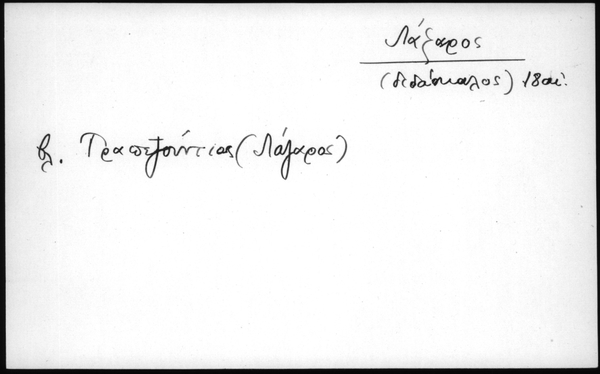 Λάζαρος
(διδάσκαλος) 18 αἰ.
βλ. Τραπεζούντιος (Λάζαρος)